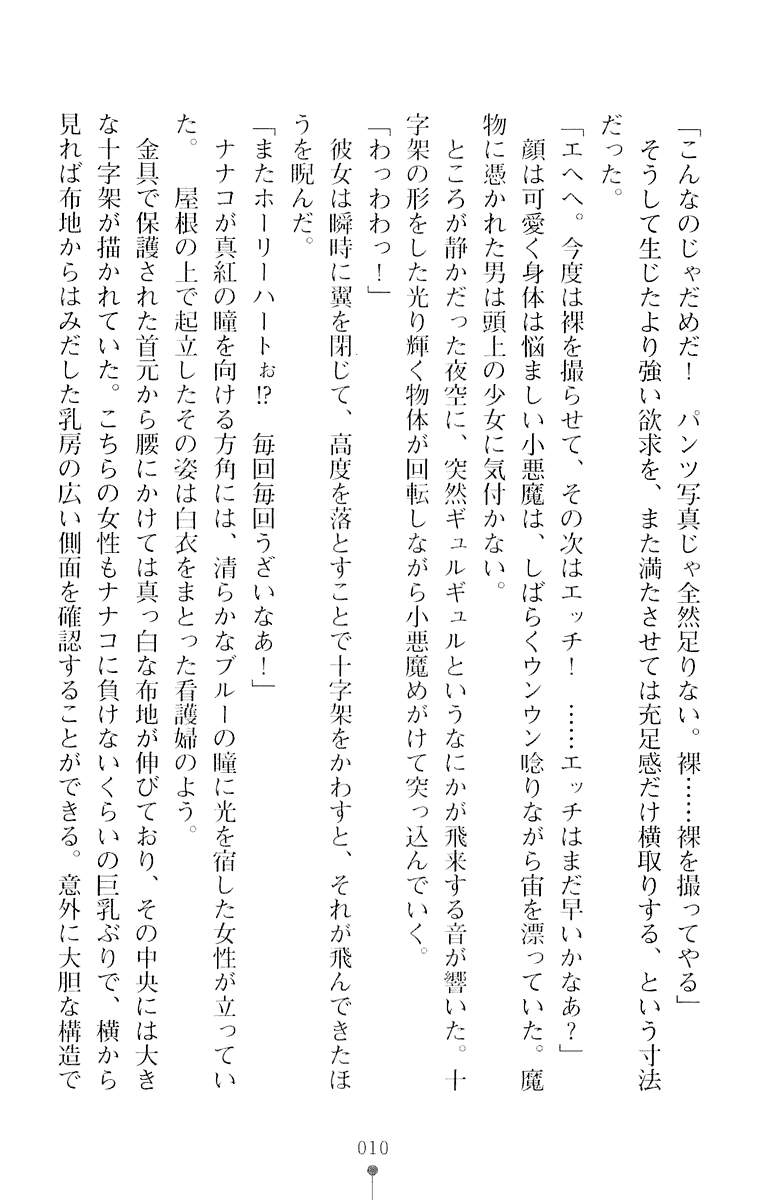 「こんなのじゃだめだ！　パンツ写真じゃ全然足りない。裸……裸を撮ってやる」
そうして生じたより強い欲求を、また満たさせては充足感だけ横取りする、という寸法
だった。
「エヘヘ。今度は裸を撮らせて、その次はエッチ！　……エッチはまだ早いかなあ？」
顔は可愛く身体は悩ましい小悪魔は、しばらくウンウン唸りながら宙を漂っていた。魔
物に憑かれた男は頭上の少女に気付かない。
ところが静かだった夜空に、突然ギュルギュルというなにかが飛来する音が響いた。十
字架の形をした光り輝く物体が回転しながら小悪魔めがけて突っ込んでいく。
「わっわわっ！」
彼女は瞬時に翼を閉じて、高度を落とすことで十字架をかわすと、それが飛んできたほ
うを睨んだ。
「またホーリーハートぉ!?　毎回毎回うざいなあ！」
ナナコが真紅の瞳を向ける方角には、清らかなブルーの瞳に光を宿した女性が立ってい
た。　屋根の上で起立したその姿は白衣をまとった看護婦のよう。
金具で保護された首元から腰にかけては真っ白な布地が伸びており、その中央には大き
な十字架が描かれていた。こちらの女性もナナコに負けないくらいの巨乳ぶりで、横から
見れば布地からはみだした乳房の広い側面を確認することができる。意外に大胆な構造で
010